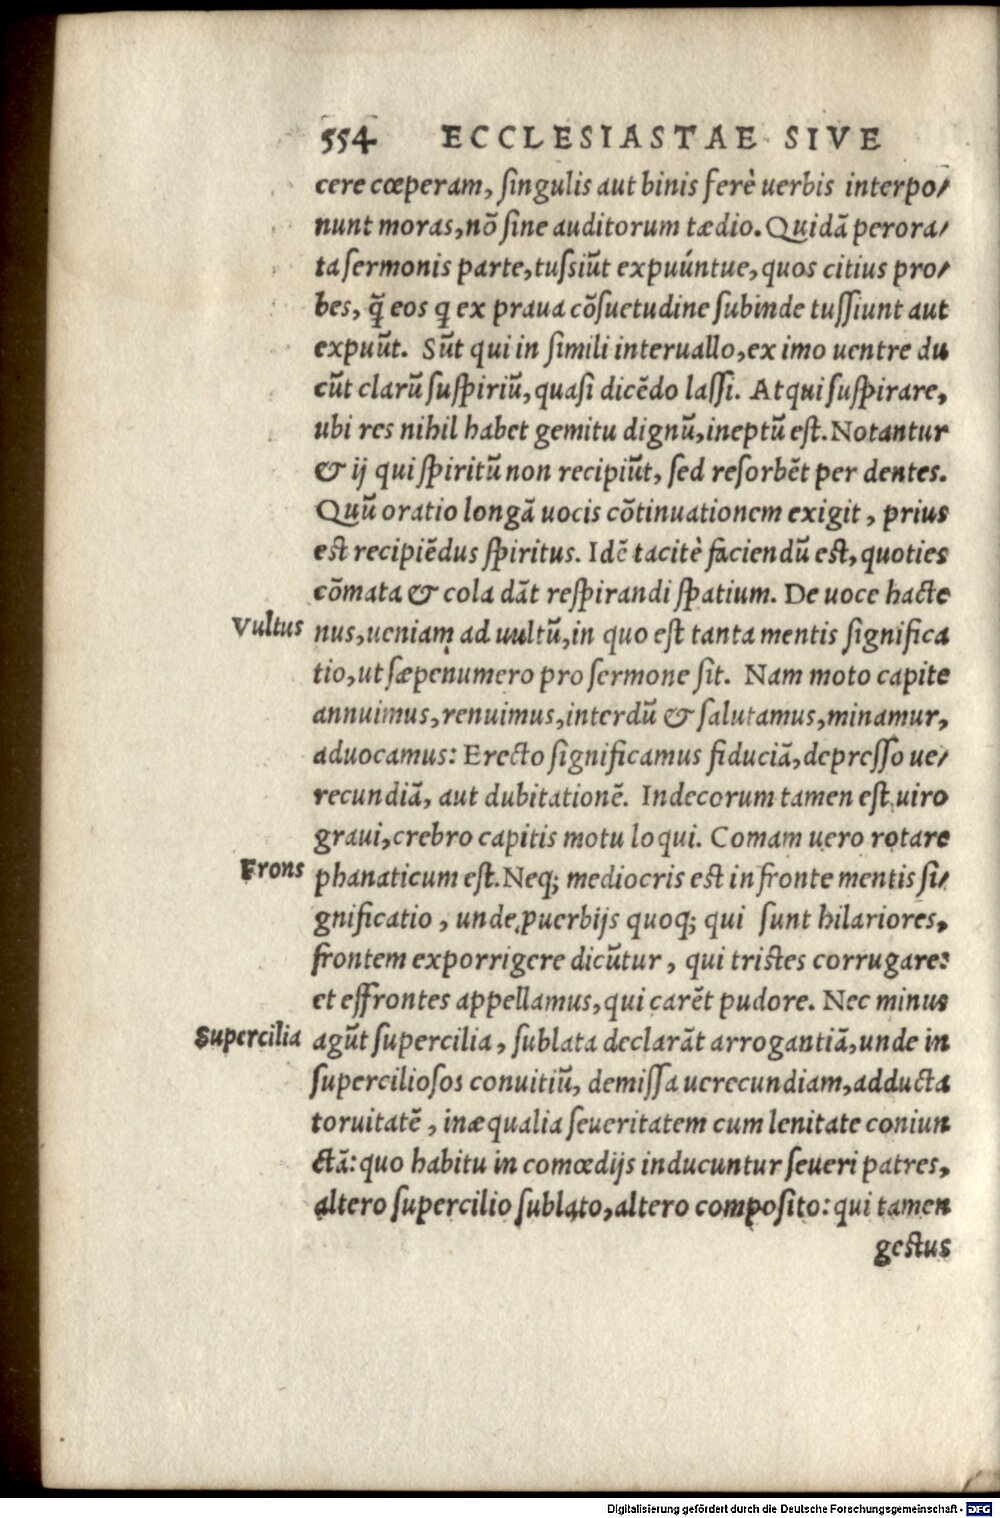 554 ECCLESIASTAE SIVE
cere cœperam, singulis aut binis ferè uerbis interpo/
nunt moras, nõ sine auditorum tædio. Quidã perora/
ta sermonis parte, tussiũt expuúntue, quos citius pro/
bes, q̃ eos q ex praua cõsuetudine subinde tussiunt aut
expuũt. Sũt qui in simili interuallo, ex imo uentre du
cũt clarũ suspiriũ, quasi dicẽdo lassi. Atqui suspirare,
ubi res nihil habet gemitu dignũ, ineptũ est. Notantur
& ij qui spiritũ non recipiũt, sed resorbẽt per dentes.
Quũ oratio longã uocis cõtinuationem exigit, prius
est recipiẽdus spiritus. Idẽ tacitè faciendũ est, quoties
cõmata & cola dãt respirandi spatium. De uoce hacte
Vultus nus, ueniam ad uultũ, in quo est tanta mentis significa
tio, ut sæpenumero pro sermone sit. Nam moto capite
annuimus, renuimus, interdũ & salutamus, minamur,
aduocamus: Erecto significamus fiduciã, depresso ue/
recundiã, aut dubitationẽ. Indecorum tamen est uiro
graui, crebro capitis motu loqui. Comam uero rotare
Frons phanaticum est. Neq; mediocris est in fronte mentis si/
gnificatio, unde ꝓuerbijs quoq; qui sunt hilariores,
frontem exporrigere dicũtur, qui tristes corrugare:
et effrontes appellamus, qui carẽt pudore. Nec minus
Supercilia agũt supercilia, sublata declarãt arrogantiã, unde in
superciliosos conuitiũ, demissa uerecundiam, adducta
toruitatẽ, inæqualia seueritatem cum lenitate coniun
ctã: quo habitu in comœdijs inducuntur seueri patres,
altero supercilio sublato, altero composito: qui tamen
gestus
Digitalisierung gefördert durch die Deutsche Forschungsgemeinschaft - DFG